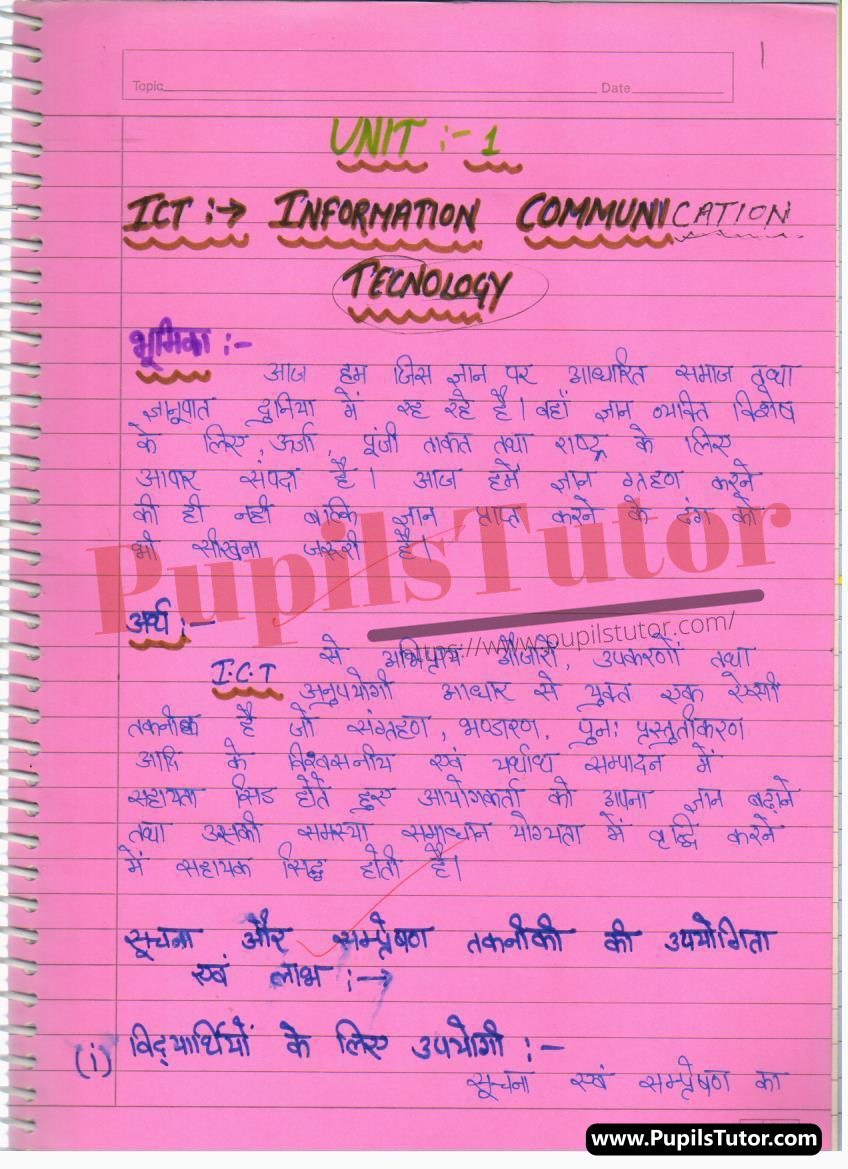 1
Topic Date
UNIT :- 1
ICT :→ INFORMATION COMMUNICATION
TECNOLOGY
भूमिका :-
आज हम जिस ज्ञान पर आधारित समाज तथा
ज्ञानूपात दुनिया में रह रहे है। वहाँ ज्ञान व्यक्ति विशेष
के लिए, ऊर्जा, पूंजी ताकत तथा राष्ट्र के लिए
आपार संपदा है। आज हमें ज्ञान ग्रहण करने
की ही नही बल्कि ज्ञान प्राप्त करने के ढंग को
भी सीखना जरूरी है।
PupilsTutor
अर्थ :-
https://www.pupilstutor.com/
I.C.T से अभिप्राय औजारों, उपकरणों तथा
अनुपयोगी आधार से युक्त एक ऐसी
तकनीक है जो संग्रहण, भण्डारण, पुनः प्रस्तुतीकरण
आदि के विश्वसनीय एवं यर्थाथ सम्पादन में
सहायता सिड होते हुए आयोगकर्ता को अपना ज्ञान बढ़ाने
तथा उसकी समस्या समाधान योग्यता में वृद्धि करने
में सहायक सिद्ध होती है।
सूचना और सम्प्रेषण तकनीकी की उपयोगिता
एवं लाभ :→
(i) विद्यार्थियों के लिए उपयोगी :-
सूचना एवं सम्प्रेषण का
www.PupilsTutor.com